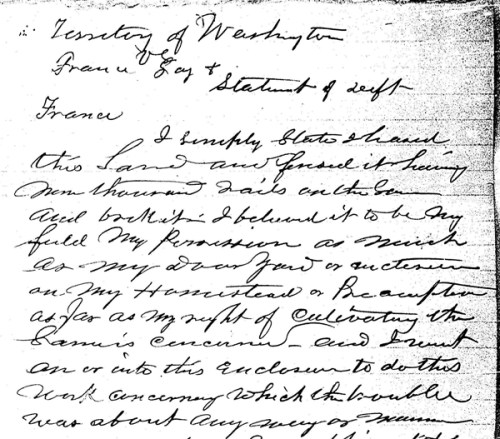 Territory of Washington
vs
France Gay &
Statment of deft
France
I simply State I hired
this Land and fenced it having
thousand rails on the
and I believed it to be my
field My Possession as much
as my door Yard or
on My Homestead or Preemption
as far as my right of Cultivating the
Same is concerned - and I went
on or into this Enclosure to do this
Work concerning which the trouble
was about any way or manner